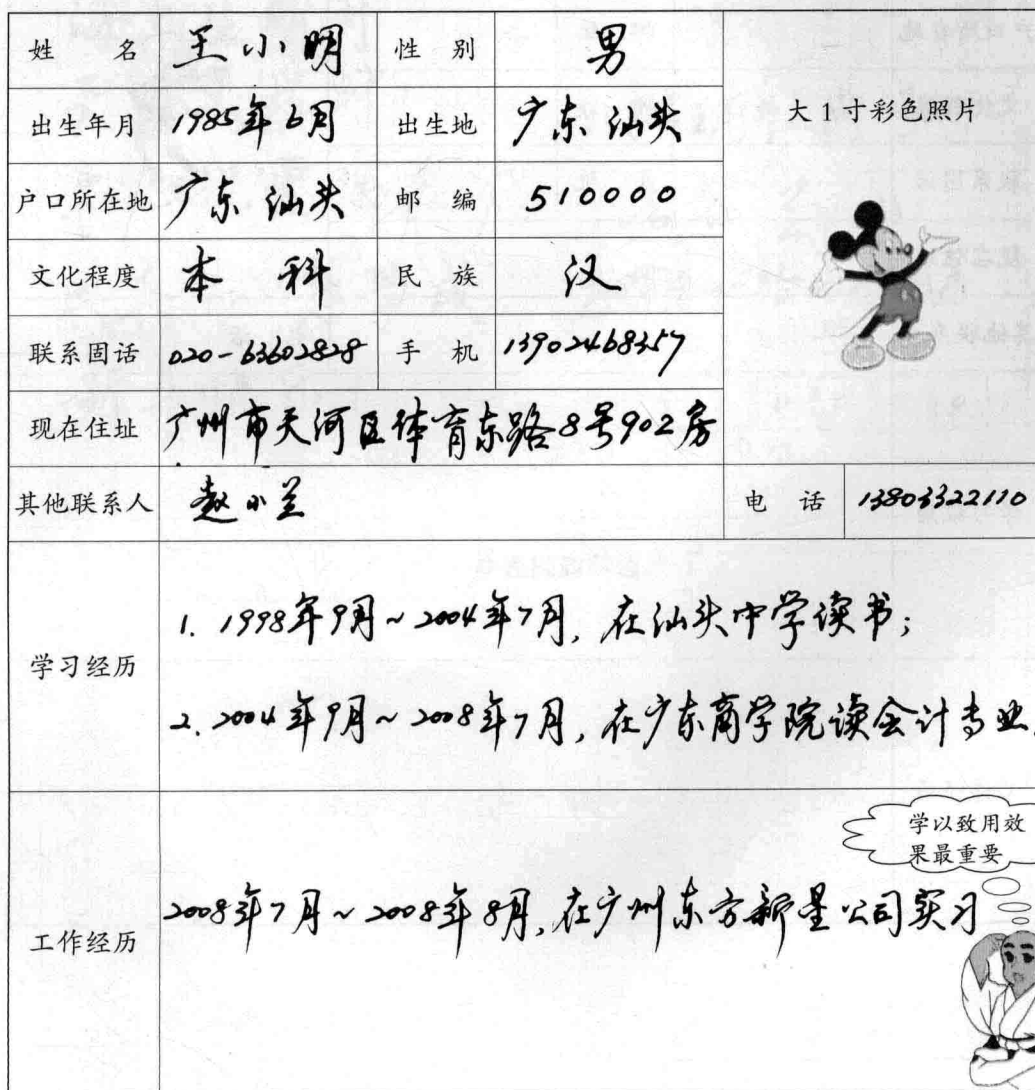 姓 名 王小明 性 别 男
大1寸彩色照片
出生年月 1985年6月 出生地 广东汕头
户口所在地 广东汕头 邮 编 510000
文化程度 本科 民 族 汉
联系固话 020-63602828 手 机 13902468357
现在住址 广州市天河区体育东路8号902房
其他联系人 赵小兰 电 话 13803322110
学习经历
1. 1998年9月~2004年7月,在汕头中学读书;
2. 2004年9月~2008年7月,在广东商学院读会计专业.
学以致用效
果最重要
工作经历 2008年7月~2008年8月,在广州东方新星公司实习